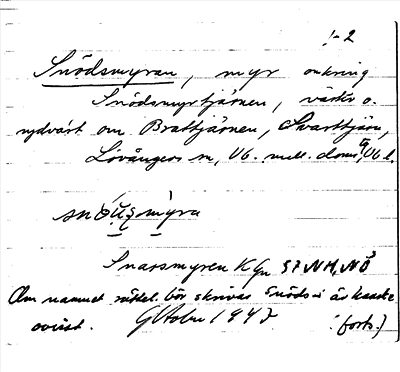 1-2
Snödsmyran, myr omkring
Snödsmyrtjärnen, väster o.
nydväst om Brattjärnen, Svarttjärn,
Lövångers sn, Vb. mell. doms, Vb l.
Snarsmyren K Gn 57 NM, NÖ
Om namnet rättel. bör skrivas Snöds- är
ovisst. 1943 (forts.)